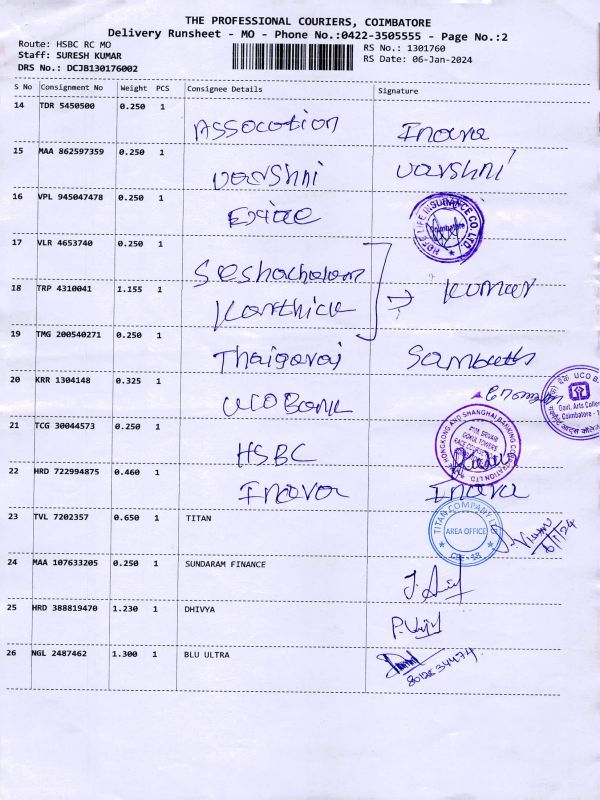 THE PROFESSIONAL COURIERS, COIMBATORE
Delivery Runsheet - MO - Phone No.:0422-3505555 - Page No.:2
Route: HSBC RC MO
RS No.: 1301760
Staff: SURESH KUMAR
RS Date: 06-Jan-2024
DRS No.: DCJB130176002
S No Consignment No Weight PCS Consignee Details Signature
14 TDR 5450500 0.250 1 Assocation Inava
15 MAA 862597359 0.250 1 varshni varshni
16 VPL 945047478 0.250 1 LIFE INSURANCE CO. LTD
17 VLR 4653740 0.250 1 Seshachalam
18 TRP 4310041 1.155 1 Karthick → Kumar
19 TMG 200540271 0.250 1 Thaigaraj
20 KRR 1304148 0.325 1 UCO Bank
UCO
Govt. Arts College
Coimbatore
21 TCG 30044573 0.250 1 HSBC HONGKONG AND SHANGHAI BANKING CORPORATION LTD
22 HRD 722994875 0.460 1 Inava Inava
23 TVL 7202357 0.650 1 TITAN TITAN COMPANY LTD
AREA OFFICE
CBE - 18
24 MAA 107633205 0.250 1 SUNDARAM FINANCE
25 HRD 388819470 1.230 1 DHIVYA
26 NGL 2487462 1.300 1 BLU ULTRA